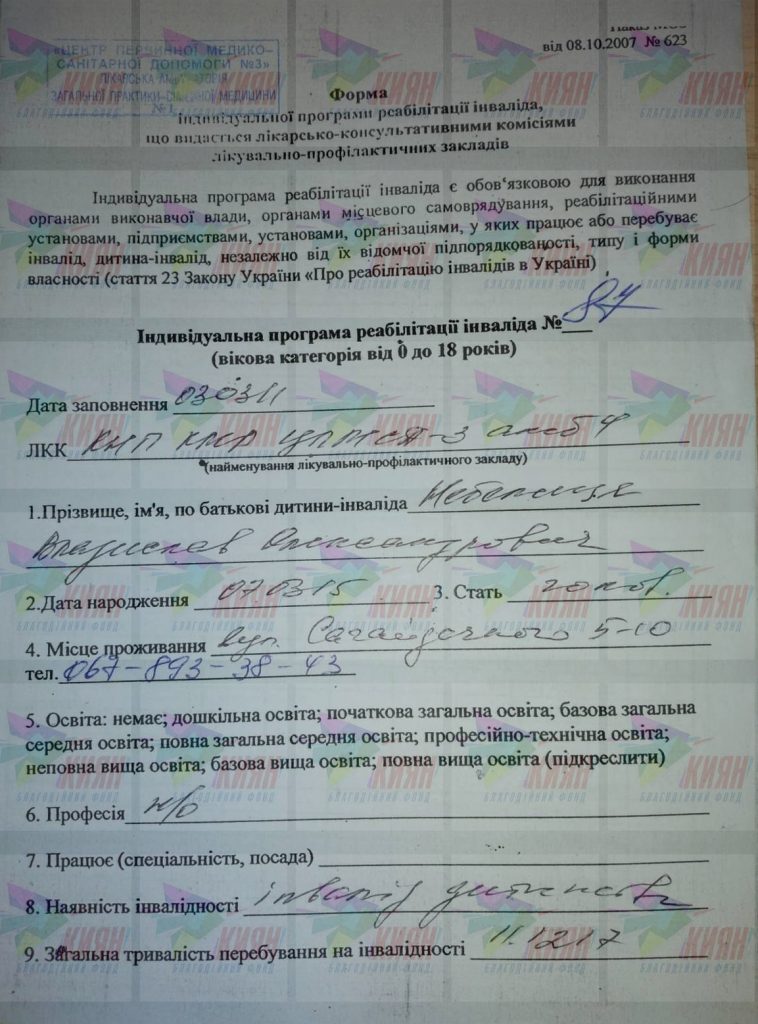 «ЦЕНТР ПЕРВИННОЇ МЕДИКО-
САНІТАРНОЇ ДОПОМОГИ №3»
ЛІКАРСЬКА АМБУЛАТОРІЯ
ЗАГАЛЬНОЇ ПРАКТИКИ-СІМЕЙНОЇ МЕДИЦИНИ
№1
Наказ МОЗ
від 08.10.2007 № 623
Форма
індивідуальної програми реабілітації інваліда,
що видається лікарсько-консультативними комісіями
лікувально-профілактичних закладів
Індивідуальна програма реабілітації інваліда є обов'язковою для виконання
органами виконавчої влади, органами місцевого самоврядування, реабілітаційними
установами, підприємствами, установами, організаціями, у яких працює або перебуває
інвалід, дитина-інвалід, незалежно від їх відомчої підпорядкованості, типу і форми
власності (стаття 23 Закону України «Про реабілітацію інвалідів в Україні)
Індивідуальна програма реабілітації інваліда № 87
(вікова категорія від 0 до 18 років)
Дата заповнення 0303
ЛКК КНП КМР ЦПМСД-3 амб
(найменування лікувально-профілактичного закладу)
1.Прізвище, ім'я, по батькові дитини-інваліда
Владислав Олександрович
2.Дата народження 070315 3. Стать чолов.
4. Місце проживання вул. Сагайдачного 5-10
тел. 067-893-38-43
5. Освіта: немає; дошкільна освіта; початкова загальна освіта; базова загальна
середня освіта; повна загальна середня освіта; професійно-технічна освіта;
неповна вища освіта; базова вища освіта; повна вища освіта (підкреслити)
6. Професія н/о
7. Працює (спеціальність, посада)
8. Наявність інвалідності інвалід дитинства
9. Загальна тривалість перебування на інвалідності 11.12 17
КИЯН
БЛАГОДІЙНИЙ ФОНД